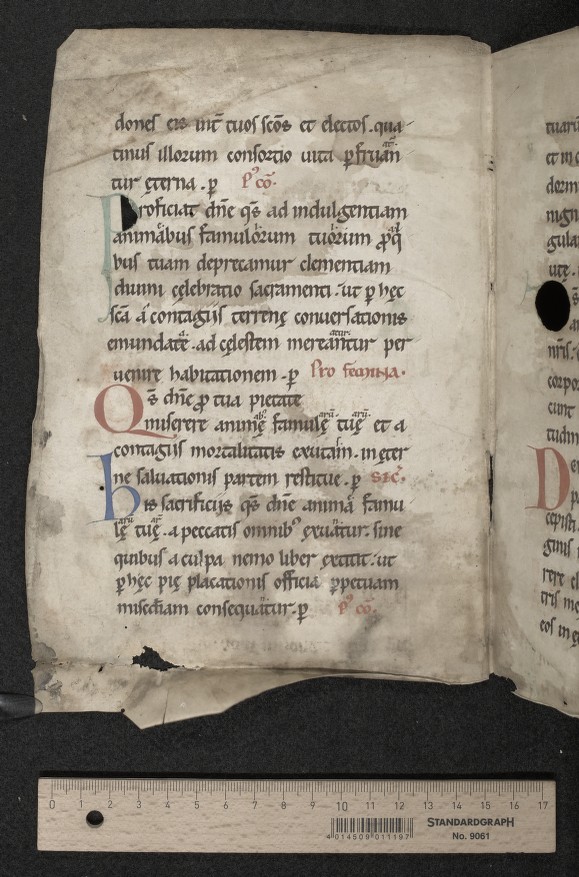 dones eis int̄ tuos scōs et electos. qua
tinus illorum consortio uita ꝑfruan
tur ęterna. ꝑ P᾽ cō.
Proficiat dn̄e qs̄ ad indulgentiam
animabus famulorum tuorum ꝓ q̄
bus tuam deprecamur clementiam
diuini cęlebratio sacramenti. ut ꝑ hęc
scā a contagiis terrenę conuersationis
emundatę. ad cęlestem mereantur per
uenire habitationem. ꝑ Pro femina.
Qs̄ dn̄e ꝓ tua pietate
miserere animę famulę tuę et a
contagiis mortalitatis exutam. in ęter
nę saluationis partem restitue. ꝑ sic̄.
His sacrificiis qs̄ dn̄e anima famu
lę tuę. a peccatis omnib᾽ exuatur. sine
quibus a culpa nemo liber extitit. ut
ꝑ hęc pię placationis officia ꝑpetuam
misedīam consequatur. ꝑ P᾽ cō.
tuarū
et in
dorm
nign
gula
utę.
nr̄is.
corpo
cunt
tudin
De
cepisti
ginis
rere el
tris me
eos in
0 1 2 3 4 5 6 7 8 9 10 11 12 13 14 15 16 17
4 014509 011197
STANDARDGRAPH
No. 9061